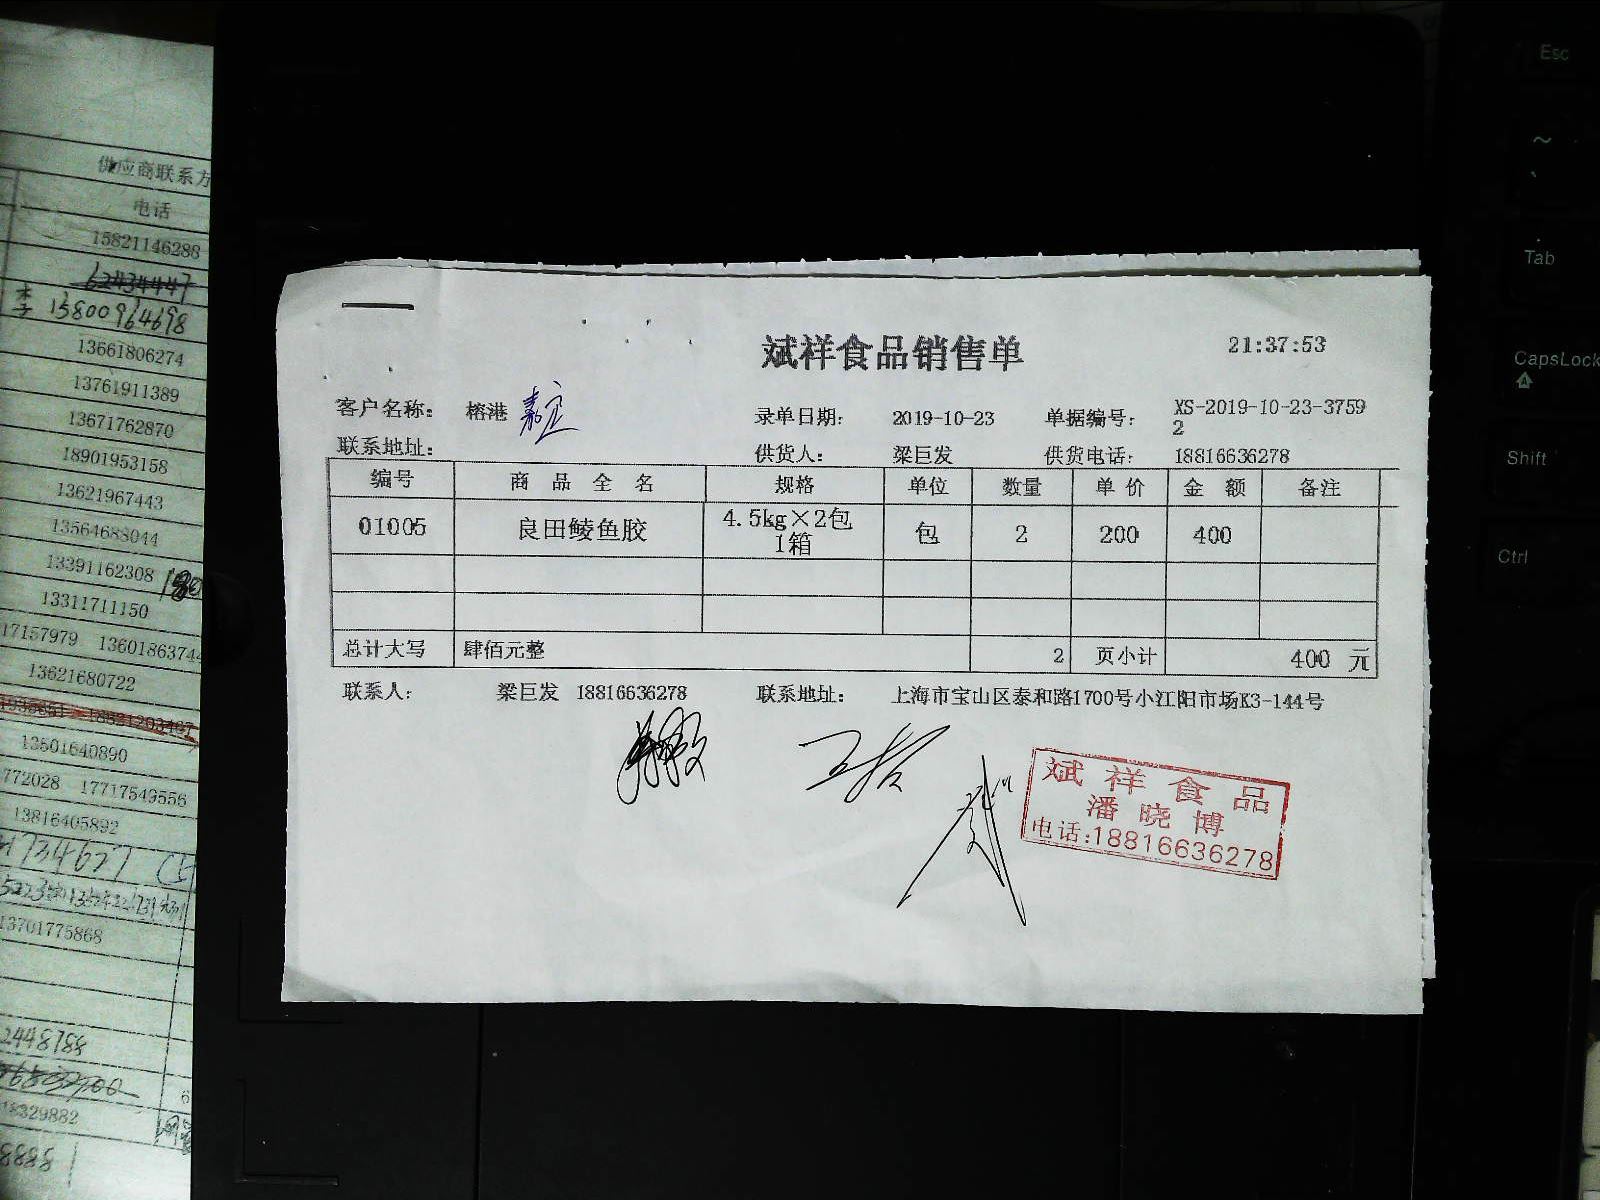 供应商联系方
电话
15821146288
62434447
李 13800964698
13661806274
13761911389
13671762870
18901953158
13621967443
13564688044
13391162308
13311711150
17157979 13601863744
13621680722
18821203407
13501640890
772028 17717549556
13816405892
13701775868
2448788
329882
8888
斌祥食品销售单 21:37:53
客户名称： 榕港 嘉定 录单日期： 2019-10-23 单据编号： XS-2019-10-23-3759
2
联系地址： 供货人： 梁巨发 供货电话： 18816636278
编号 商品全名 规格 单位 数量 单价 金额 备注
01005 良田鲮鱼胶 4.5kg×2包 包 2 200 400
1箱
总计大写 肆佰元整 2 页小计 400 元
联系人： 梁巨发 18816636278 联系地址： 上海市宝山区泰和路1700号小江阳市场K3-144号
斌祥食品
潘晓博
电话:18816636278
Esc
~
Tab
CapsLock
Shift
Ctrl